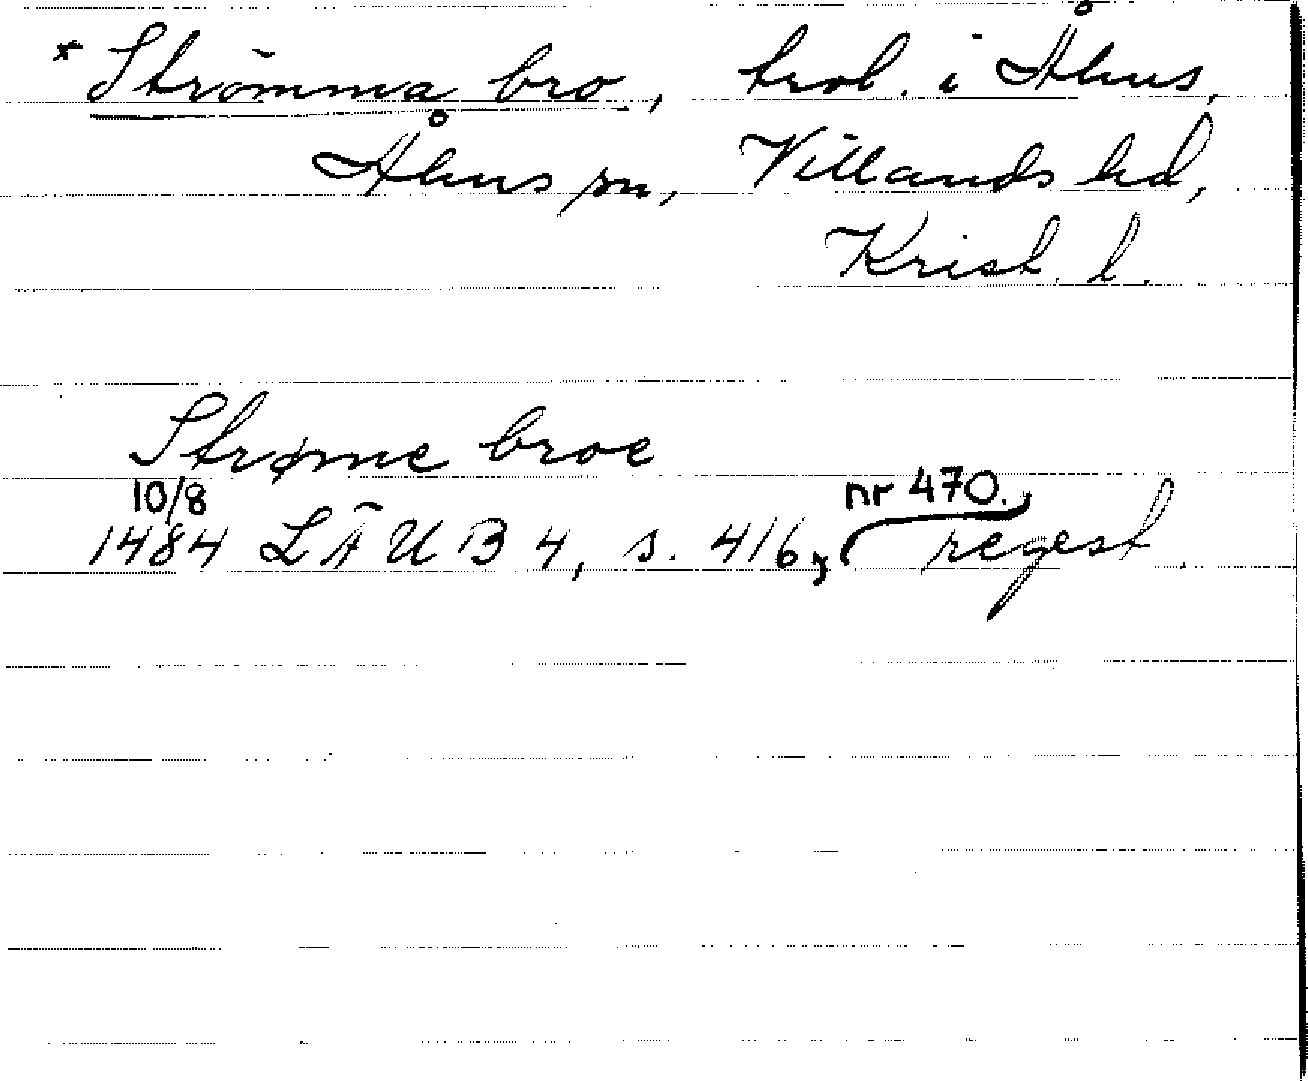 * Strömma bro, trol. i Åhus,
Åhus sn, Villands hd,
Krist. l.
Strøme broe
10/8
nr 470.
1484 LÄUB 4, s. 416, regest.